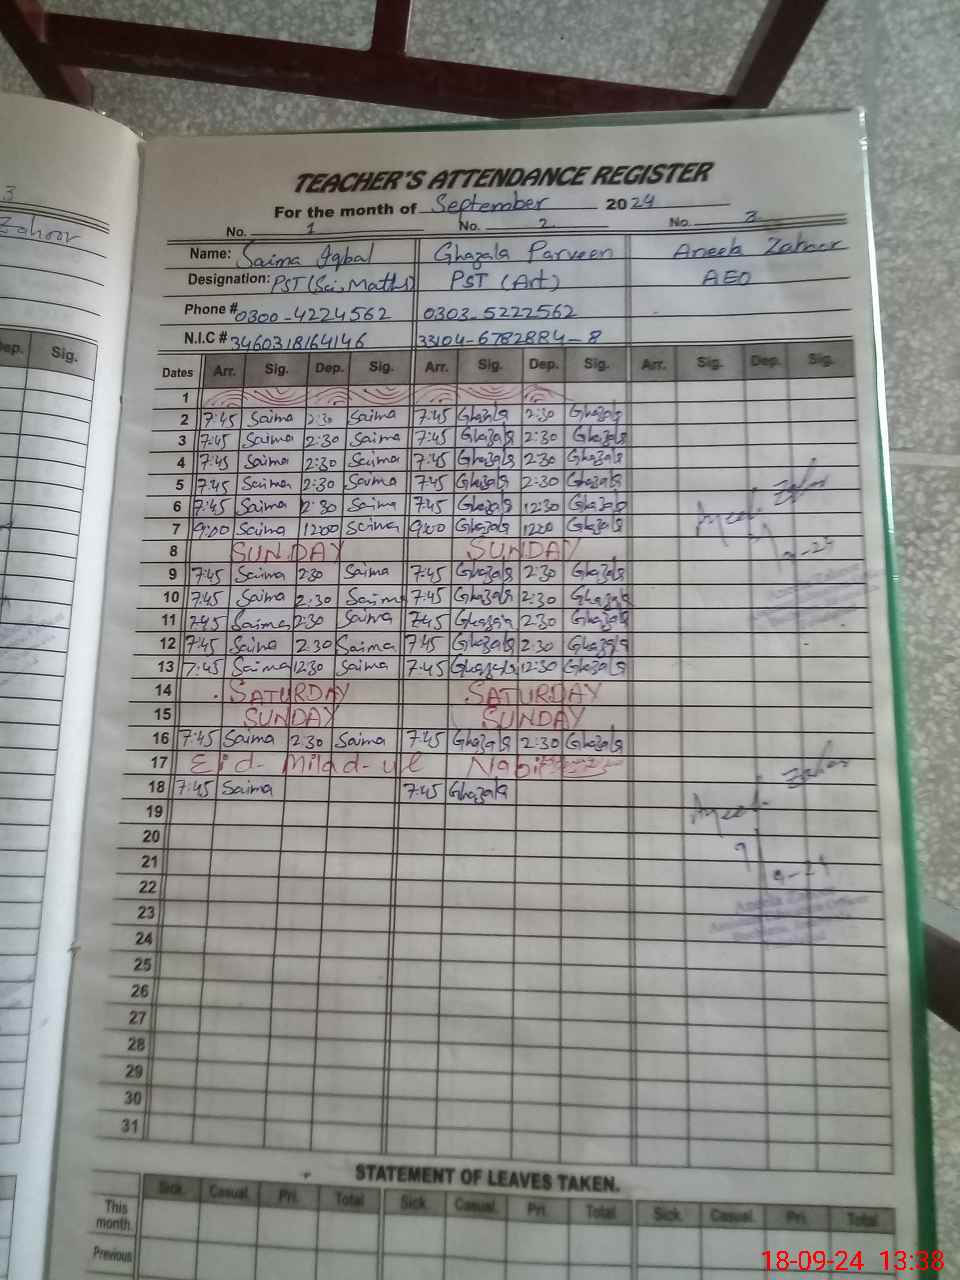 3
Zahoor
TEACHER'S ATTENDANCE REGISTER
For the month of September 2024
No. 1 No. 2 No. 3
Name: Saima Iqbal Ghazala Parveen Aneela Zahoor
Designation: PST (Sci, Maths) PST (Art) AEO
Phone # 0300-4224562 0303-5222562
N.I.C # 3460318164146 33104-6782884-8
Dep. Sig.
Dates Arr. Sig. Dep. Sig. Arr. Sig. Dep. Sig. Arr. Sig. Dep. Sig.
1
2 7:45 Saima 2:30 Saima 7:45 Ghazala 2:30 Ghazala
3 7:45 Saima 2:30 Saima 7:45 Ghazala 2:30 Ghazala
4 7:45 Saima 2:30 Saima 7:45 Ghazala 2:30 Ghazala
5 7:45 Saima 2:30 Saima 7:45 Ghazala 2:30 Ghazala
6 7:45 Saima Saima 7:45 Ghazala 12:30 Ghazala
7 9:00 Saima 1200 Saima 9:00 Ghazala 1200 Ghazala
8 SUNDAY SUNDAY
9 7:45 Saima 2:30 Saima 7:45 Ghazala 2:30 Ghazala
10 7:45 Saima 2:30 Saima 7:45 Ghazala 2:30 Ghazala
11 7:45 Saima 2:30 Saima 7:45 Ghazala 2:30 Ghazala
12 7:45 Saima 2:30 Saima 7:45 Ghazala 2:30 Ghazala
13 7:45 Saima 12:30 Saima 7:45 Ghazala 12:30 Ghazala
14 SATURDAY SATURDAY
15 SUNDAY SUNDAY
16 7:45 Saima 2:30 Saima 7:45 Ghazala 2:30 Ghazala
17 Eid-Milad-ul Nabi
18 7:45 Saima 7:45 Ghazala
19
20
21
22
23
24
25
26
27
28
29
30
31
STATEMENT OF LEAVES TAKEN.
Sick. Casual. Pri. Total Sick. Casual. Pri. Total Sick. Casual. Pri. Total
This month.
Previous
18-09-24 13:38